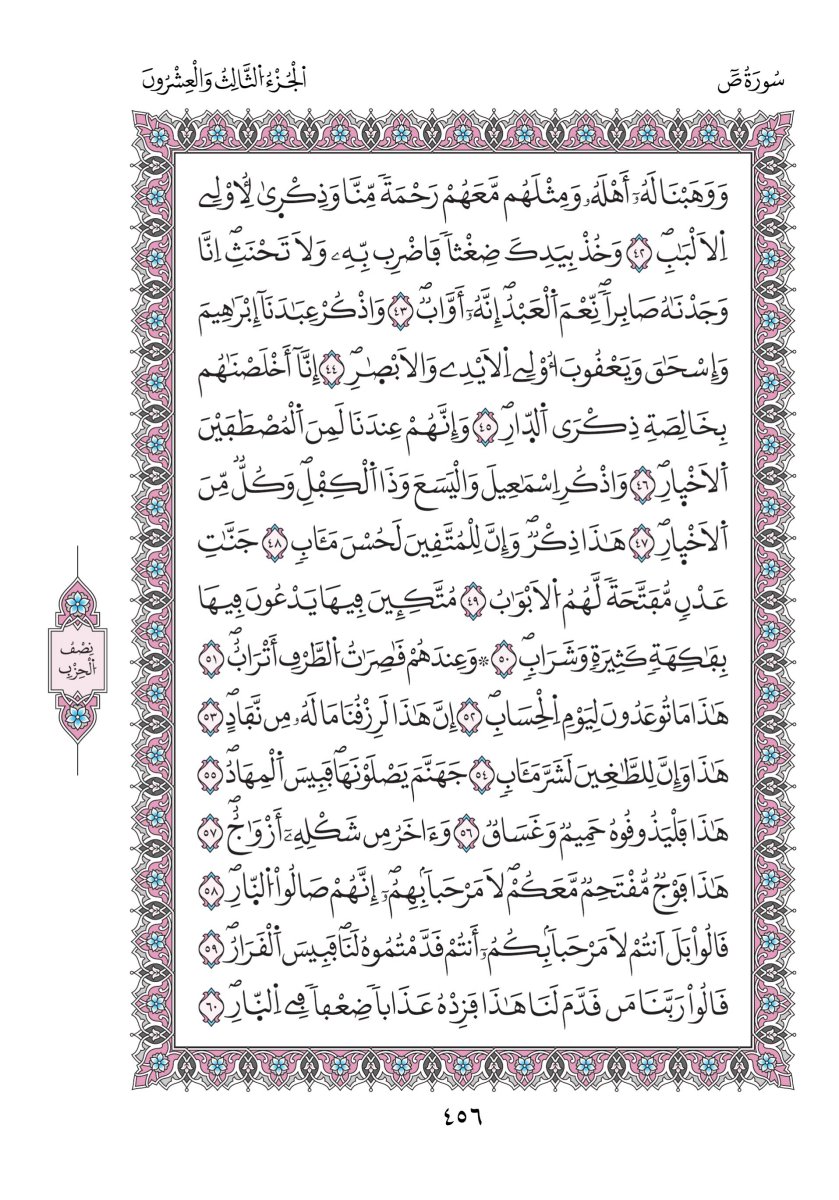 سُورَةُ صٓ
اَ۬لْجُزْءُ اُ۬لثَّالِثُ وَالْعِشْرُونَ
وَوَهَبْنَا لَهُۥٓ أَهْلَهُۥ وَمِثْلَهُم مَّعَهُمْ رَحْمَةٗ مِّنَّا وَذِكْر۪يٰ لِأُوْلِے
اِ۬لَالْبَٰبِۖ ٤٢ وَخُذْ بِيَدِكَ ضِغْثاٗ فَاضْرِب بِّهِۦ وَلَا تَحْنَثِۖ اِنَّا
وَجَدْنَٰهُ صَابِراٗۖ نِّعْمَ اَ۬لْعَبْدُۖ إِنَّهُۥٓ أَوَّابٞۖ ٤٣ وَاذْكُرْ عِبَٰدَنَآ إِبْرَٰهِيمَ
وَإِسْحَٰقَ وَيَعْقُوبَ أُوْلِے اِ۬لَايْدِے وَالَابْصٰ۪رِۖ ٤٤ إِنَّآ أَخْلَصْنَٰهُم
بِخَالِصَةِ ذِكْرَي اَ۬لدّ۪ارِۖ ٤٥ وَإِنَّهُمْ عِندَنَا لَمِنَ اَ۬لْمُصْطَفَيْنَ
اَ۬لَاخْي۪ارِۖ ٤٦ وَاذْكُرِ اِسْمَٰعِيلَ وَالْيَسَعَ وَذَا اَ۬لْكِفْلِۖ وَكُلّٞ مِّنَ
اَ۬لَاخْي۪ارِۖ ٤٧ هَٰذَا ذِكْرٞۖ وَإِنَّ لِلْمُتَّقِينَ لَحُسْنَ مَـَٔابٖ ٤٨ جَنَّٰتِ
عَدْنٖ مُّفَتَّحَةٗ لَّهُمُ اُ۬لَابْوَٰبُ ٤٩ مُتَّكِـِٕينَ فِيهَا يَدْعُونَ فِيهَا
بِفَٰكِهَةٖ كَثِيرَةٖ وَشَرَابٖۖ ٥٠ ۞وَعِندَهُمْ قَٰصِرَٰتُ اُ۬لطَّرْفِ أَتْرَابٌۖ ٥١
هَٰذَا مَا تُوعَدُونَ لِيَوْمِ اِ۬لْحِسَابِۖ ٥٢ إِنَّ هَٰذَا لَرِزْقُنَا مَا لَهُۥ مِن نَّفَادٍۖ ٥٣
هَٰذَا وَإِنَّ لِلطَّٰغِينَ لَشَرَّ مَـَٔابٖ ٥٤ جَهَنَّمَ يَصْلَوْنَهَا فَبِيسَ اَ۬لْمِهَادُۖ ٥٥
هَٰذَا فَلْيَذُوقُوهُ حَمِيمٞ وَغَسَاقٞ ٥٦ وَءَاخَرُ مِن شَكْلِهِۦٓ أَزْوَٰجٌۖ ٥٧
هَٰذَا فَوْجٞ مُّقْتَحِمٞ مَّعَكُمْۖ لَا مَرْحَباَۢ بِهِمُۥٓۖ إِنَّهُمْ صَالُواْ اُ۬لنّ۪ارِۖ ٥٨
قَالُواْ بَلَ اَنتُمْ لَا مَرْحَباَۢ بِكُمُۥٓ أَنتُمْ قَدَّمْتُمُوهُ لَنَاۖ فَبِيسَ اَ۬لْقَرَارُۖ ٥٩
قَالُواْ رَبَّنَا مَن قَدَّمَ لَنَا هَٰذَا فَزِدْهُ عَذَاباٗ ضِعْفاٗ فِے اِ۬لنّ۪ارِۖ ٦٠
نِصْفُ
اُ۬لْحِزْبِ
٤٥٦